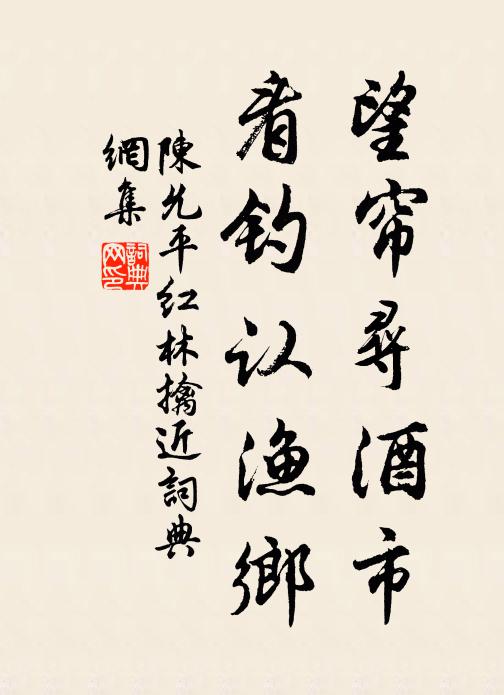 望帘尋酒市
看钓认漁鄉
陳允平红林擒近詞典
網集
詞典
网印